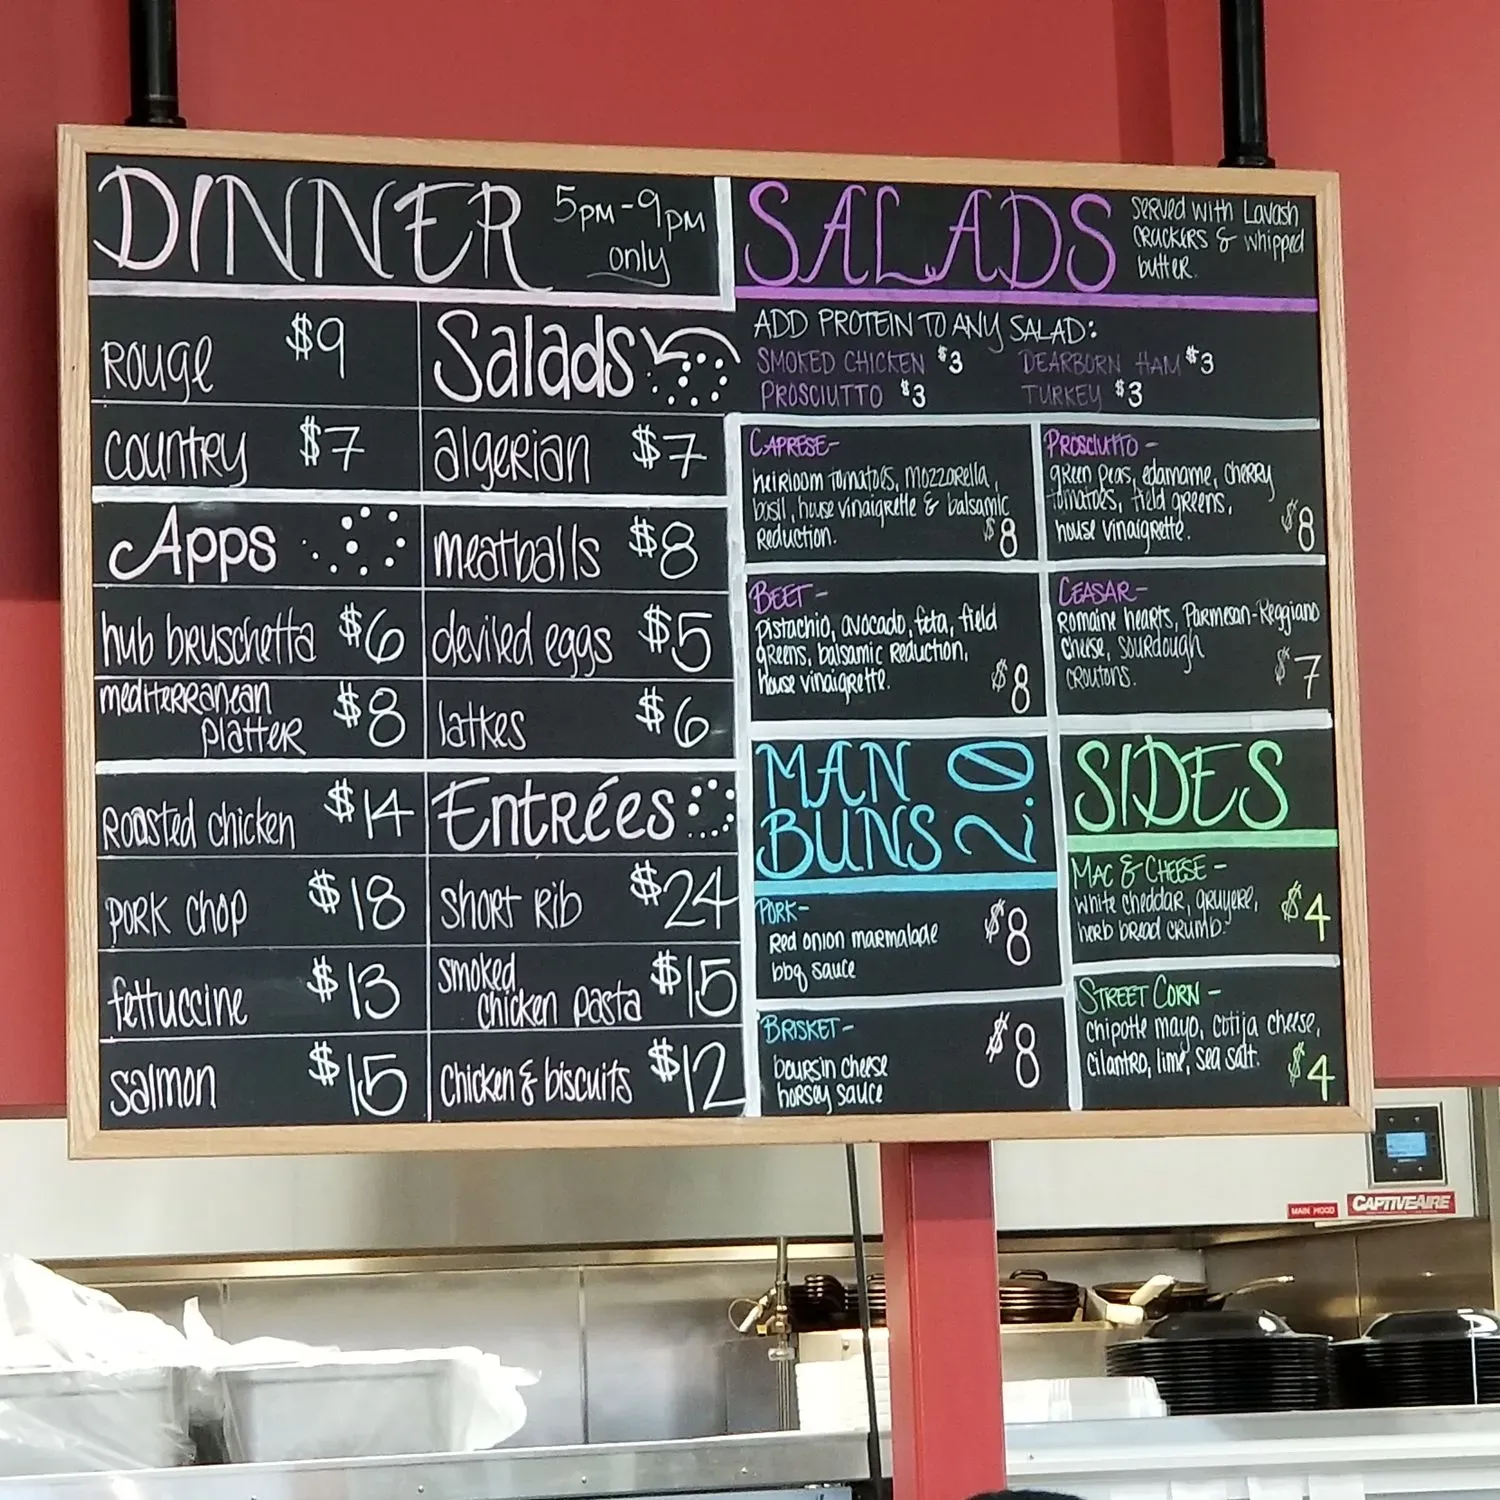 DINNER 5pm-9pm
only
Rouge $9
Salads
country $7
algerian $7
Apps
meatballs $8
hub bruschetta $6
deviled eggs $5
mediterranean
platter $8
latkes $6
roasted chicken $14
Entrées
pork chop $18
short rib $24
fettuccine $13
smoked
chicken pasta $15
salmon $15
chicken & biscuits $12
SALADS
served with Lavash
crackers & whipped
butter.
ADD PROTEIN TO ANY SALAD:
SMOKED CHICKEN $3
DEARBORN HAM $3
PROSCIUTTO $3
TURKEY $3
CAPRESE-
heirloom tomatoes, mozzarella,
basil, house vinaigrette & balsamic
Reduction. $8
PROSCIUTTO -
green peas, edamame, cherry
tomatoes, field greens,
house vinaigrette. $8
BEET-
pistachio, avocado, feta, field
greens, balsamic reduction,
house vinaigrette. $8
CEASAR-
Romaine hearts, Parmesan-Reggiano
cheese, sourdough
croutons. $7
MAN
BUNS 2.0
PORK-
Red onion marmalade
bbq sauce $8
BRISKET-
boursin cheese
horsey sauce $8
SIDES
MAC & CHEESE -
white cheddar, gruyere,
herb bread crumb. $4
STREET CORN -
chipotle mayo, cotija cheese,
cilantro, lime, sea salt. $4
MAIN HOOD
CAPTIVEAIRE